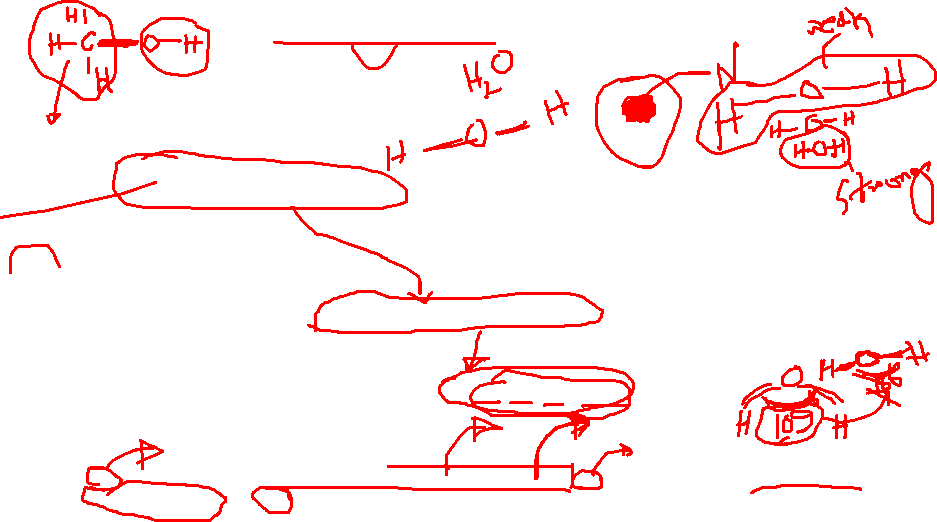 H
H-C-O-H
H
H2O
H-O-H
weak
H-O-H
H-C-H
HOH
strong
H-O-H
O
H H